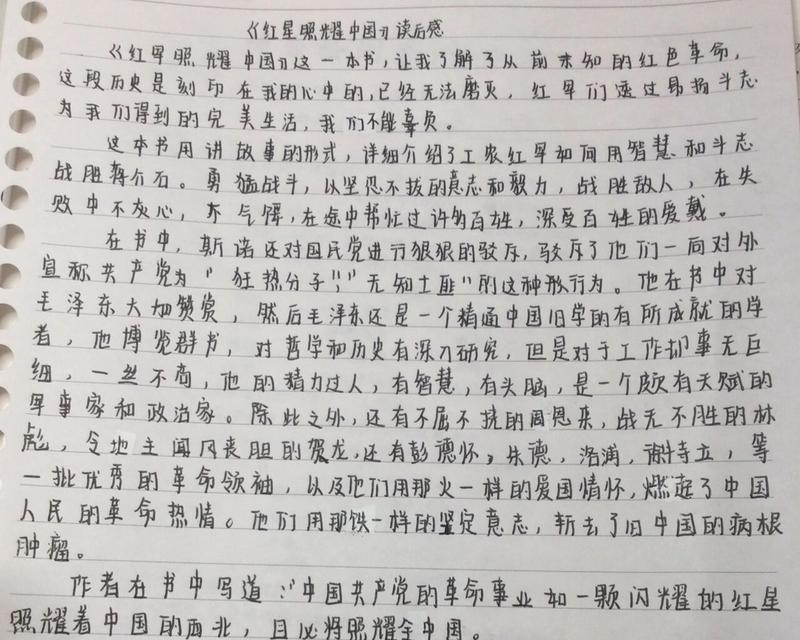 《红星照耀中国》读后感
《红星照耀中国》这一本书，让我了解了从前未知的红色革命，
这段历史是刻印在我的心中的，已经无法磨灭，红军们透过昂扬斗志
为我们得到的完美生活，我们不能辜负。
这本书用讲故事的形式，详细介绍了工农红军如何用智慧和斗志
战胜蒋介石。勇猛战斗，以坚忍不拔的意志和毅力，战胜敌人，在失
败中不灰心，不气馁，在途中帮忙过许多百姓，深受百姓的爱戴。
在书中，斯诺还对国民党进行狠狠的驳斥，驳斥了他们一向对外
宣称共产党为"狂热分子""无知土匪"的这种形行为。他在书中对
毛泽东大加赞赏，然后毛泽东还是一个精通中国旧学的有所成就的学
者，他博览群书，对哲学和历史有深入研究，但是对于工作却事无巨
细，一丝不苟，他的精力过人，有智慧，有头脑，是一个颇有天赋的
军事家和政治家。除此之外，还有不屈不挠的周恩来，战无不胜的林
彪，令地主闻风丧胆的贺龙，还有彭德怀，朱德，洛浦，谢特立，等
一批优秀的革命领袖，以及他们用那火一样的爱国情怀，燃起了中国
人民的革命热情。他们用那铁一样的坚定意志，斩去了旧中国的病根
肿瘤。
作者在书中写道："中国共产党的革命事业如一颗闪耀的红星
照耀着中国的西北，且必将照耀全中国。